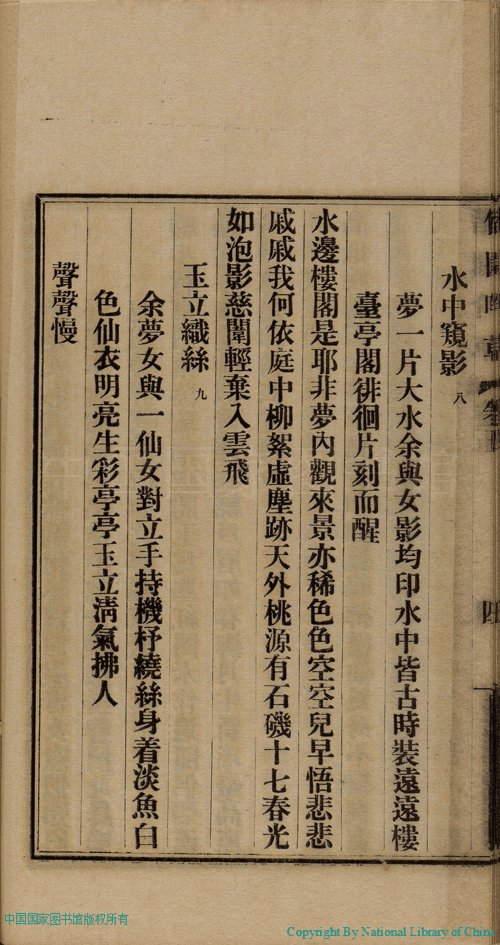 水中窺影 八
夢一片大水余與女影均印水中皆古時裝遠遠樓
臺亭閣徘徊片刻而醒
水邊樓閣是耶非夢內觀來景亦稀色色空空兒早悟悲悲
戚戚我何依庭中柳絮虛塵跡天外桃源有石磯十七春光
如泡影慈闈輕棄入雲飛
玉立織絲 九
余夢女與一仙女對立手持機杼繞絲身着淡魚白
色仙衣明亮生彩亭亭玉立淸氣拂人
聲聲慢
中国国家图书馆版权所有
Copyright By National Library of China